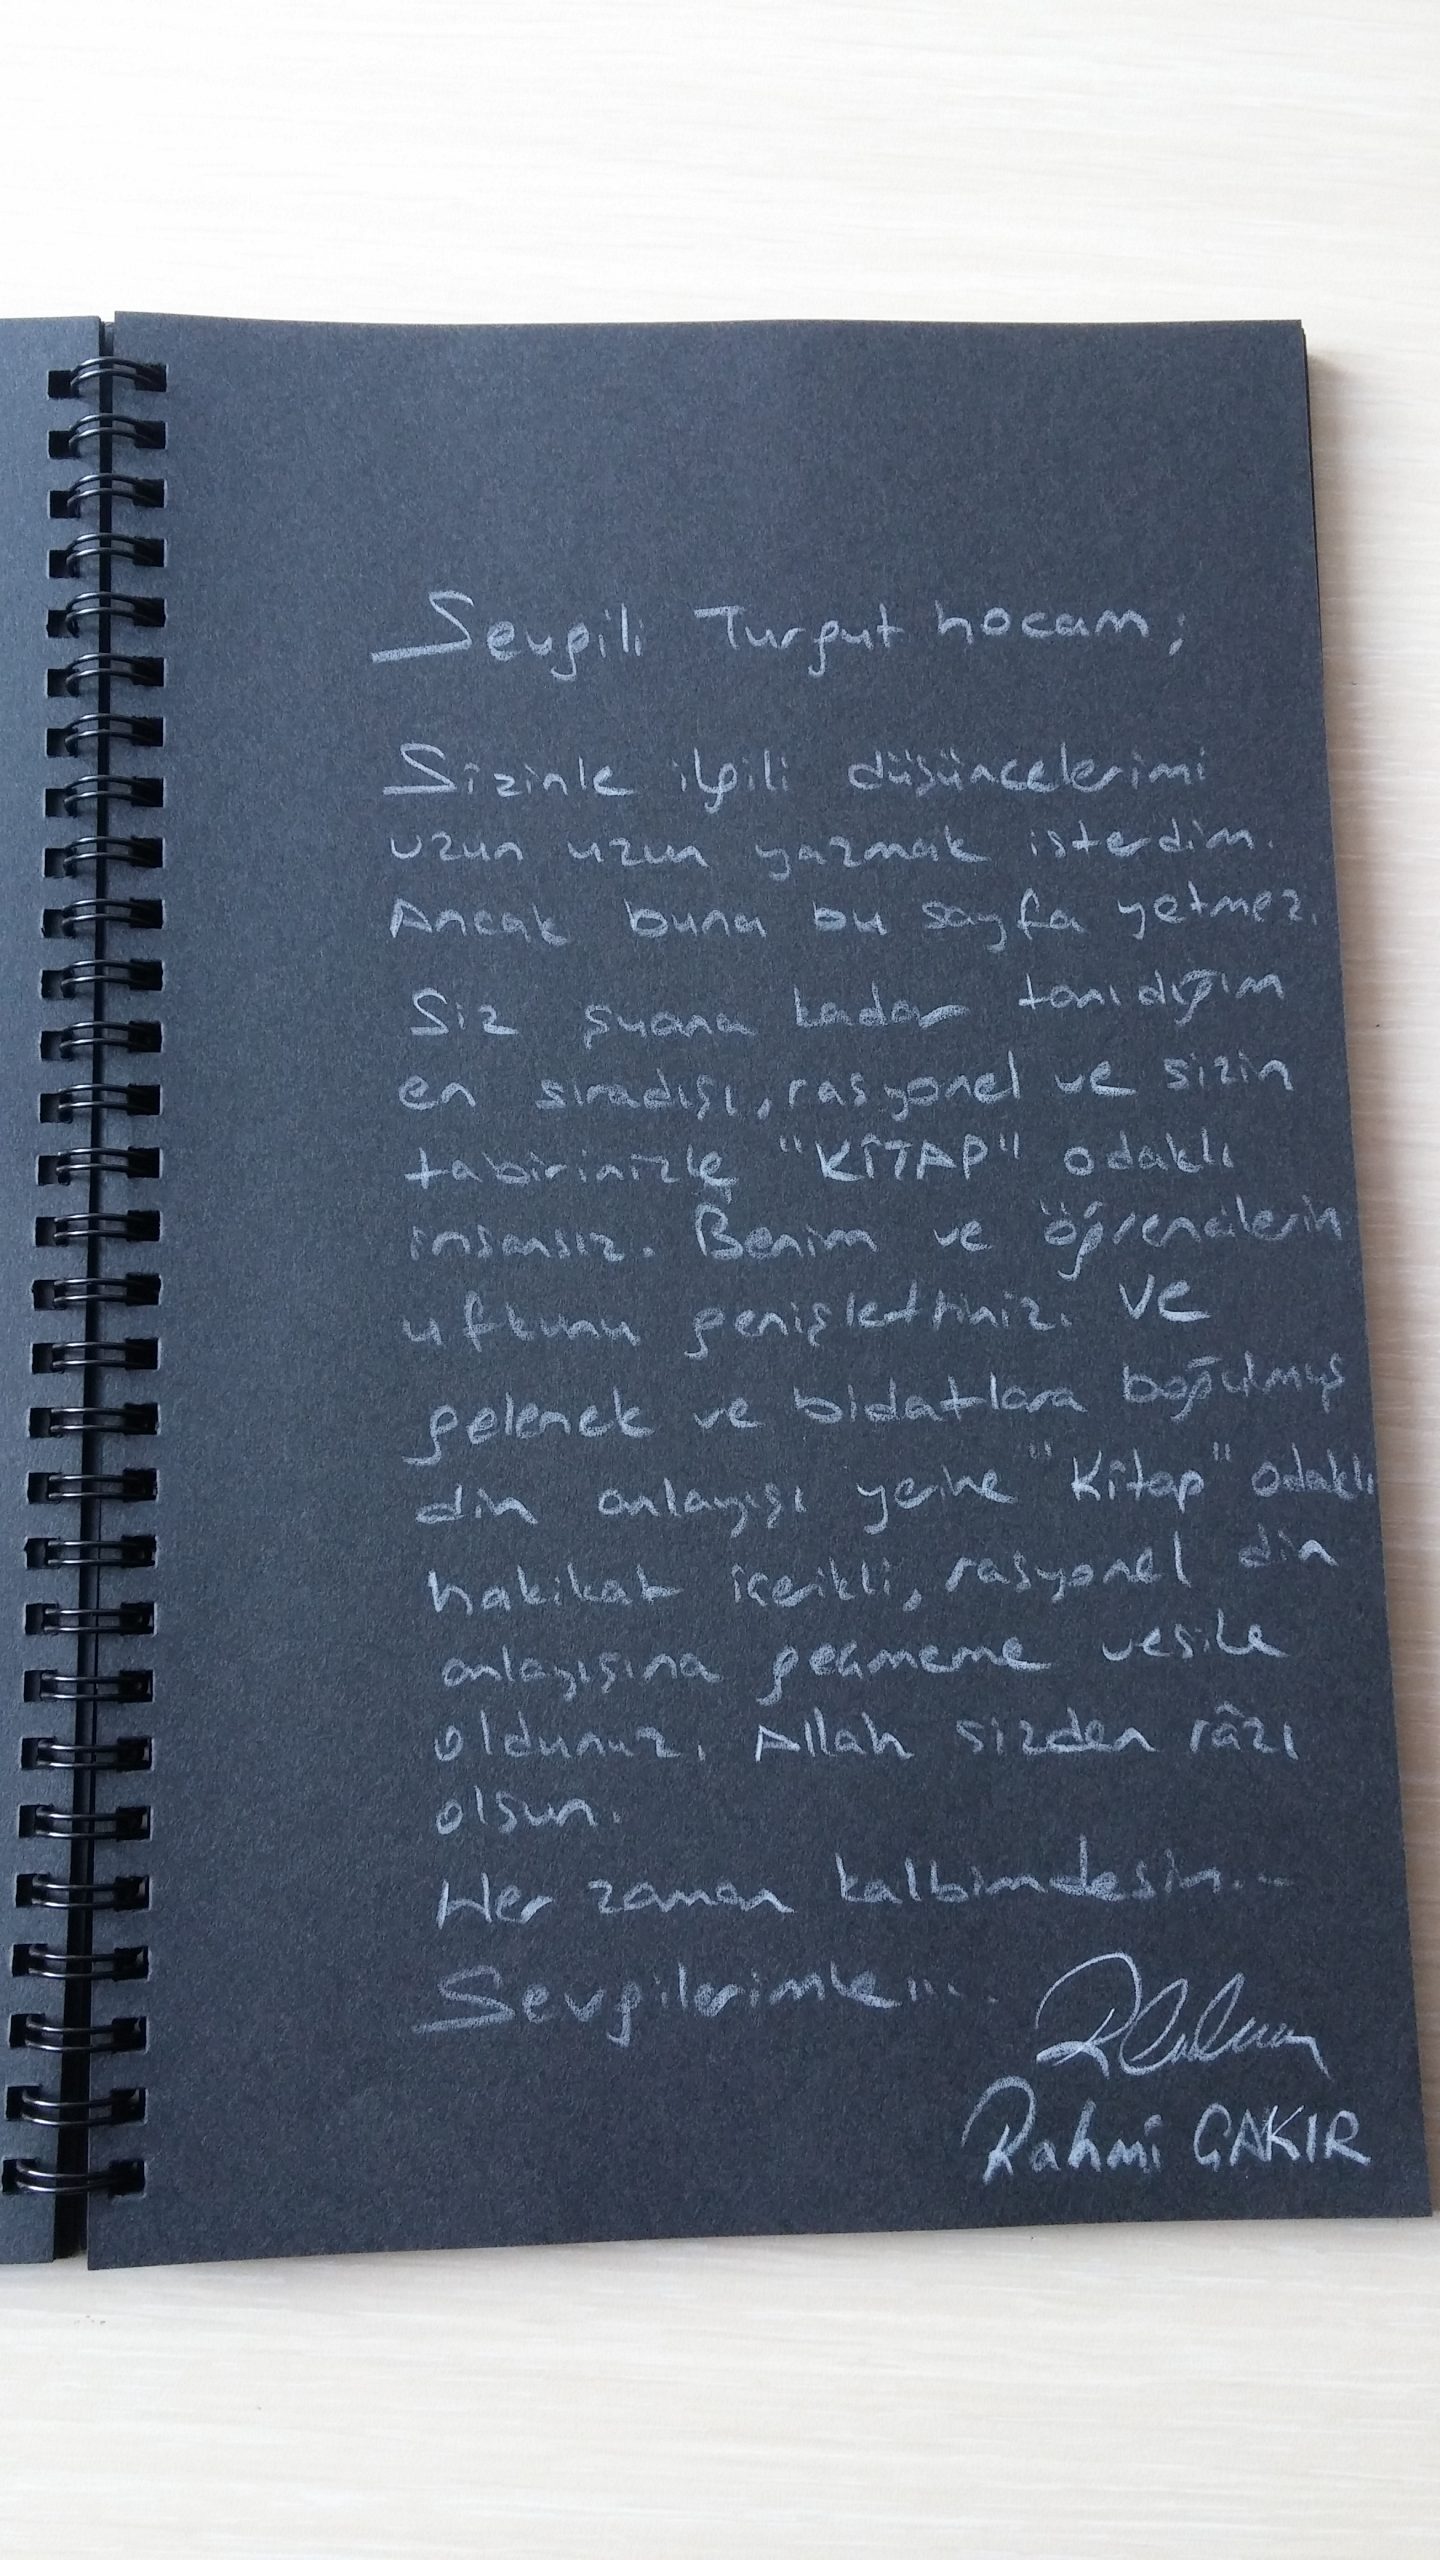 Sevgili Turgut hocam;
Sizinle ilgili düşüncelerimi
uzun uzun yazmak isterdim.
Ancak buna bu sayfa yetmez.
Siz şuana kadar tanıdığım
en sıradışı, rasyonel ve sizin
tabirinizle "KİTAP" odaklı
insansız. Benim ve öğrencilerin
ufkunu genişlettiniz. Ve
gelenek ve bidatlara boğulmuş
din anlayışı yerine "Kitap" odaklı
hakikat içerikli, rasyonel din
anlayışına geçmeme vesile
oldunuz. Allah sizden râzı
olsun.
Her zaman kalbimdesin...
Sevgilerimle...
Rahmi ÇAKIR